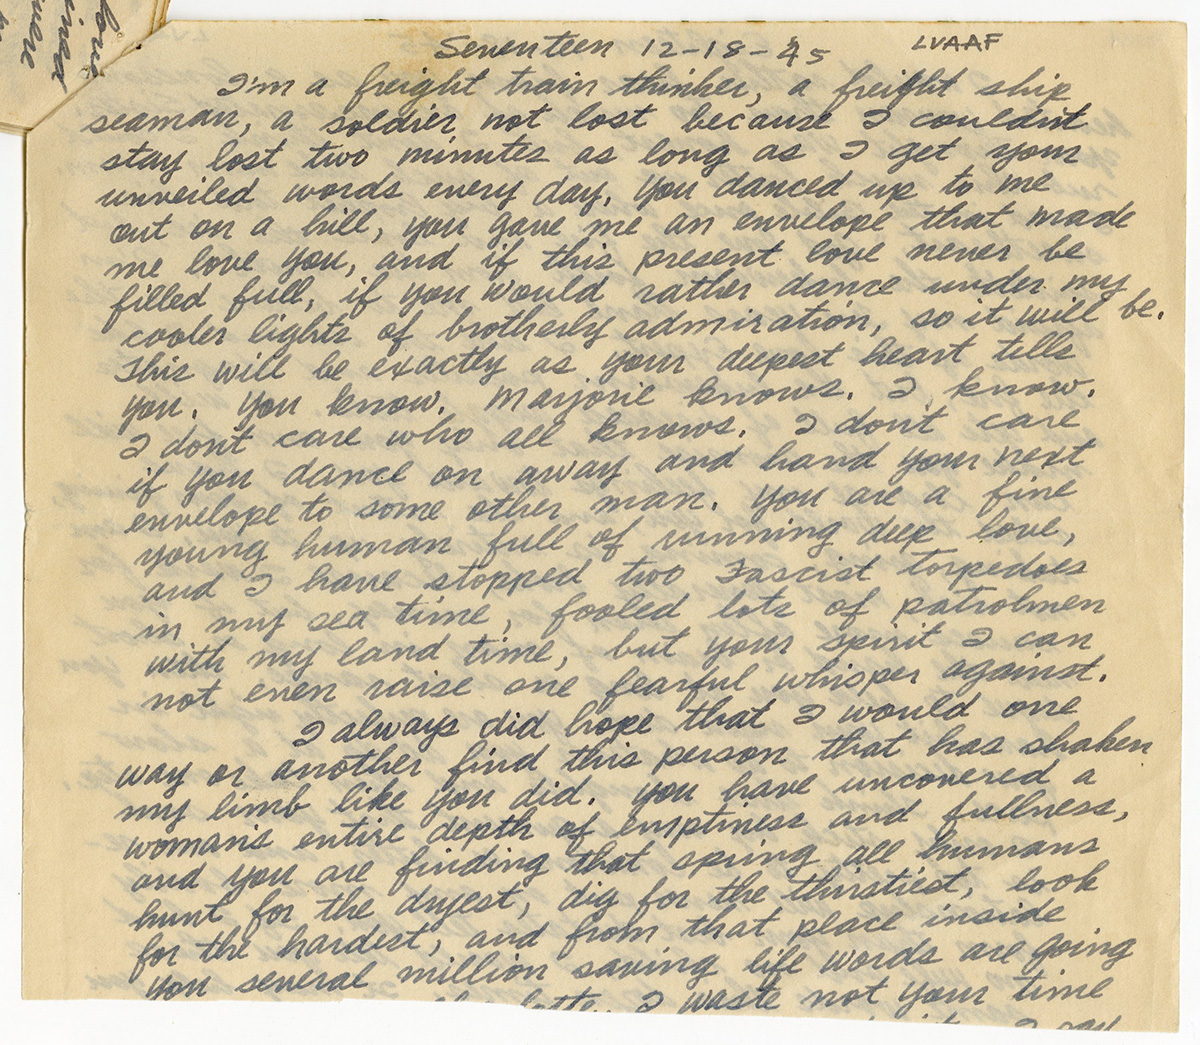 love
Seventeen 12-18-45 LVAAF
I'm a freight train thinker, a freight ship
seaman, a soldier not lost because I couldnt
stay lost two minutes as long as I get your
unveiled words every day. You danced up to me
out on a hill, you gave me an envelope that made
me love you, and if this present love never be
filled full, if you would rather dance under my
cooler lights of brotherly admiration, so it will be.
This will be exactly as your deepest heart tells
you. You know. Marjorie knows. I know.
I dont care who all knows. I dont care
if you dance on away and hand your next
envelope to some other man. You are a fine
young human full of running deep love,
and I have stopped two Fascist Torpedoes
in my sea time, fooled lots of patrolmen
with my land time, but your spirit I can
not even raise one fearful whisper against.
I always did hope that I would one
way or another find this person that has shaken
my limb like you did. You have uncovered a
womans entire depth of emptiness and fullness,
and you are finding that spring all humans
hunt for the dryest, dig for the thirstiest, look
for the hardest, and from that place inside
you several million saving life words are going
I waste not your time
I say